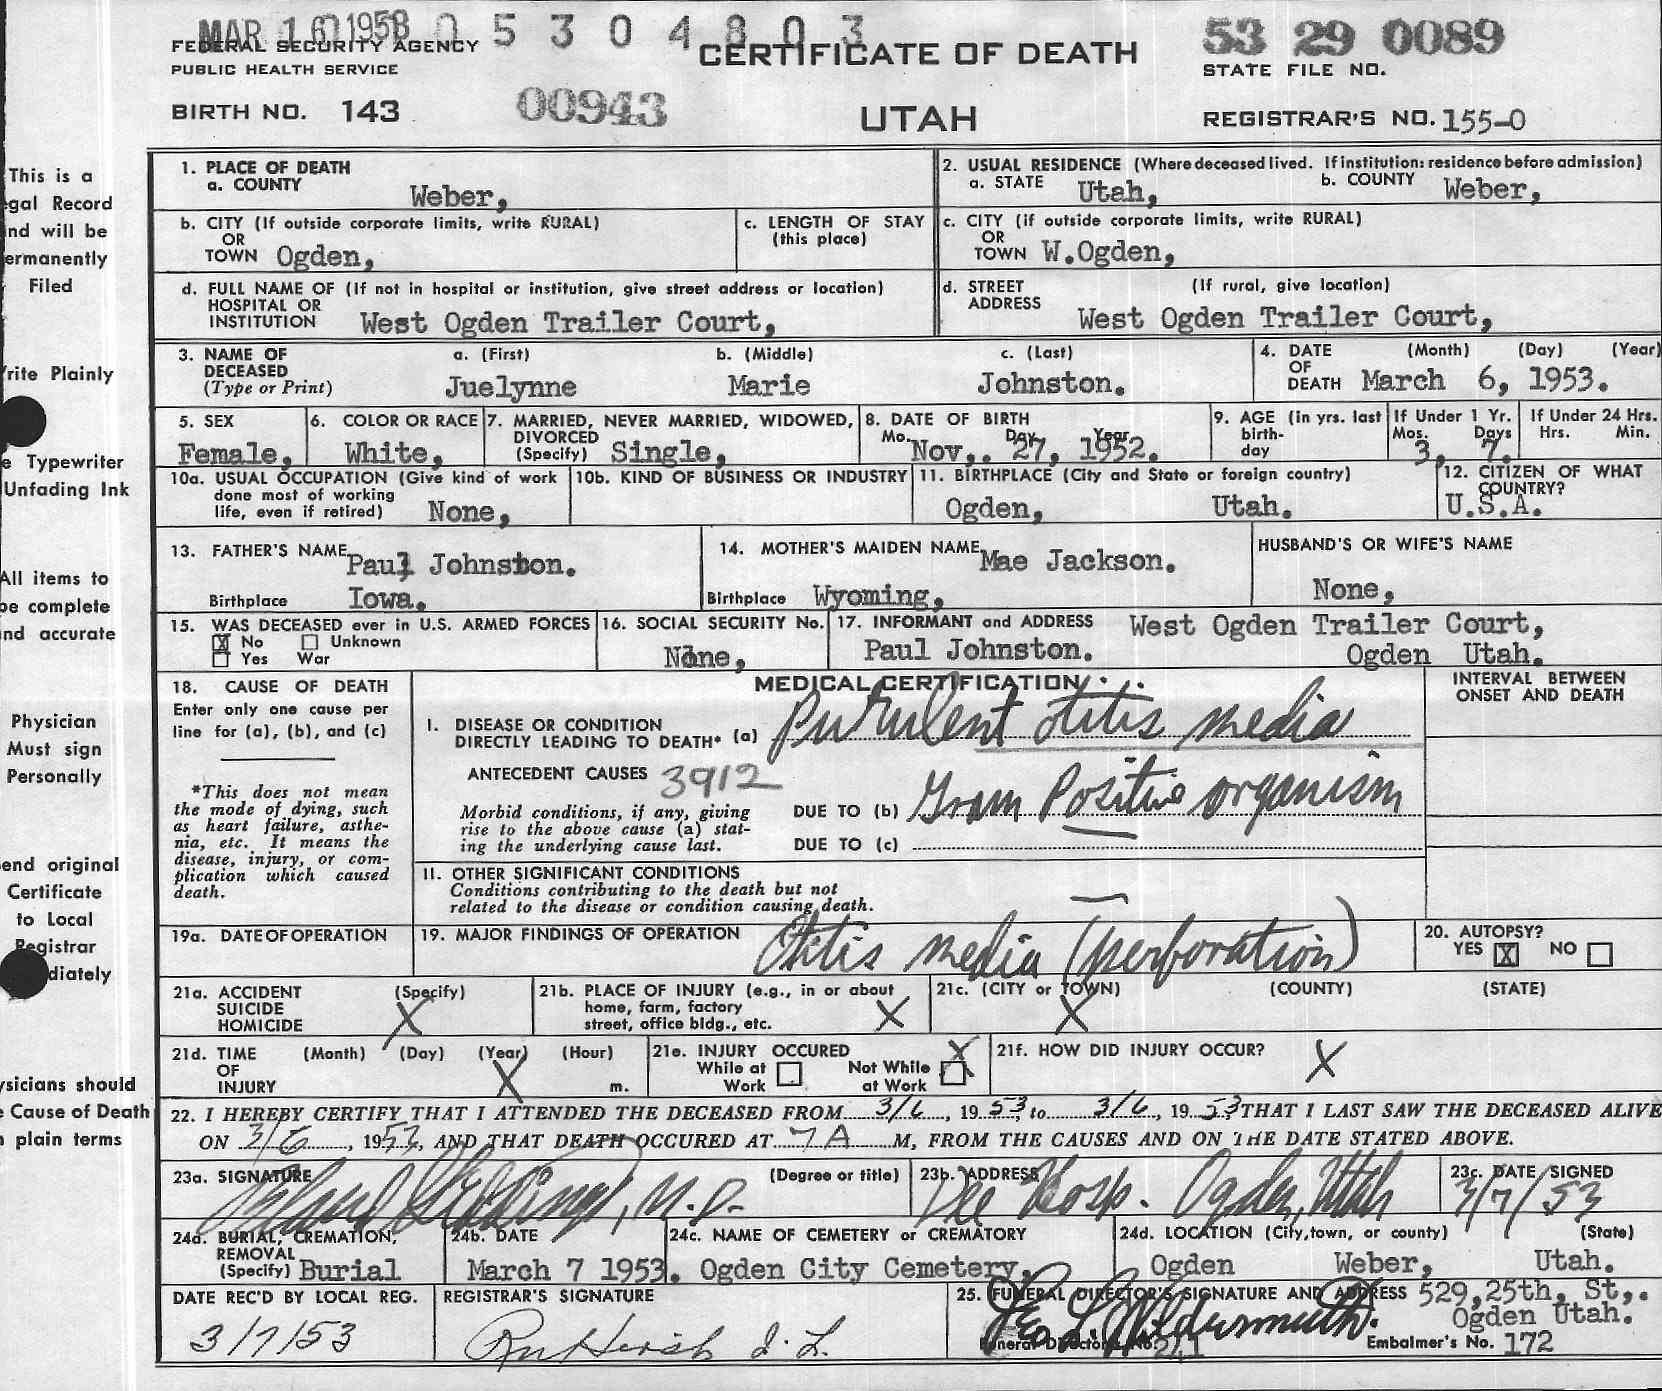 MAR 16 1953 0 5 3 0 4 8 0 3
53 29 0089
FEDERAL SECURITY AGENCY
CERTIFICATE OF DEATH
PUBLIC HEALTH SERVICE
STATE FILE NO.
BIRTH NO. 143
00943
UTAH
REGISTRAR'S NO. 155-0
This is a
gal Record
nd will be
ermanently
Filed
rite Plainly
e Typewriter
Unfading Ink
All items to
be complete
nd accurate
Physician
Must sign
Personally
end original
Certificate
to Local
Registrar
diately
ysicians should
e Cause of Death
n plain terms
1. PLACE OF DEATH
a. COUNTY Weber,
2. USUAL RESIDENCE (Where deceased lived. If institution: residence before admission)
a. STATE Utah, b. COUNTY Weber,
b. CITY (If outside corporate limits, write RURAL)
OR
TOWN Ogden,
c. LENGTH OF STAY
(this place)
c. CITY (if outside corporate limits, write RURAL)
OR
TOWN W.Ogden,
d. FULL NAME OF (If not in hospital or institution, give street address or location)
HOSPITAL OR
INSTITUTION West Ogden Trailer Court,
d. STREET (If rural, give location)
ADDRESS West Ogden Trailer Court,
3. NAME OF DECEASED (Type or Print)
a. (First) b. (Middle) c. (Last)
Juelynne Marie Johnston.
4. DATE OF DEATH (Month) (Day) (Year)
March 6, 1953.
5. SEX
Female,
6. COLOR OR RACE
White,
7. MARRIED, NEVER MARRIED, WIDOWED,
DIVORCED
(Specify) Single,
8. DATE OF BIRTH
Mo. Day Year
Nov,. 27, 1952.
9. AGE (in yrs. last
birth-
day
If Under 1 Yr.
Mos. Days
3, 7.
If Under 24 Hrs.
Hrs. Min.
10a. USUAL OCCUPATION (Give kind of work
done most of working
life, even if retired) None,
10b. KIND OF BUSINESS OR INDUSTRY
11. BIRTHPLACE (City and State or foreign country)
Ogden, Utah.
12. CITIZEN OF WHAT
COUNTRY?
U.S.A.
13. FATHER'S NAME Paul Johnston.
Birthplace Iowa.
14. MOTHER'S MAIDEN NAME Mae Jackson.
Birthplace Wyoming,
HUSBAND'S OR WIFE'S NAME
None,
15. WAS DECEASED ever in U.S. ARMED FORCES
X No Unknown
Yes War
16. SOCIAL SECURITY No.
None,
17. INFORMANT and ADDRESS West Ogden Trailer Court,
Paul Johnston. Ogden Utah.
18. CAUSE OF DEATH
Enter only one cause per
line for (a), (b), and (c)
*This does not mean
the mode of dying, such
as heart failure, asthe-
nia, etc. It means the
disease, injury, or com-
plication which caused
death.
MEDICAL CERTIFICATION
INTERVAL BETWEEN
ONSET AND DEATH
I. DISEASE OR CONDITION
DIRECTLY LEADING TO DEATH* (a) Purulent otitis media
ANTECEDENT CAUSES 3912
Morbid conditions, if any, giving
rise to the above cause (a) stat-
ing the underlying cause last.
DUE TO (b) Gram Positive organism
DUE TO (c)
II. OTHER SIGNIFICANT CONDITIONS
Conditions contributing to the death but not
related to the disease or condition causing death.
19a. DATE OF OPERATION
19. MAJOR FINDINGS OF OPERATION Otitis media (perforation)
20. AUTOPSY?
YES X NO
21a. ACCIDENT (Specify)
SUICIDE
HOMICIDE X
21b. PLACE OF INJURY (e.g., in or about
home, farm, factory
street, office bldg., etc. X
21c. (CITY or TOWN) (COUNTY) (STATE)
X
21d. TIME (Month) (Day) (Year) (Hour)
OF
INJURY X m.
21e. INJURY OCCURED
While at Work
Not While at Work X
21f. HOW DID INJURY OCCUR? X
22. I HEREBY CERTIFY THAT I ATTENDED THE DECEASED FROM 3/6, 1953, to 3/6, 1953 THAT I LAST SAW THE DECEASED ALIVE
ON 3/6, 1953, AND THAT DEATH OCCURED AT 7 A M, FROM THE CAUSES AND ON THE DATE STATED ABOVE.
23a. SIGNATURE (Degree or title)
M.D.
23b. ADDRESS
Dee Hosp. Ogden, Utah
23c. DATE SIGNED
3/7/53
24a. BURIAL, CREMATION,
REMOVAL
(Specify) Burial
24b. DATE
March 7 1953.
24c. NAME OF CEMETERY or CREMATORY
Ogden City Cemetery,
24d. LOCATION (City, town, or county) (State)
Ogden Weber, Utah.
DATE REC'D BY LOCAL REG.
3/7/53
REGISTRAR'S SIGNATURE
25. FUNERAL DIRECTOR'S SIGNATURE AND ADDRESS 529,25th, St,.
Ogden Utah.
Funeral Director's No. 241
Embalmer's No. 172